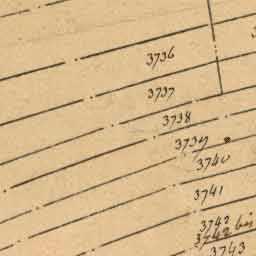 3736
3737
3738
3739
3740
3741
3742
3742 bis
3743